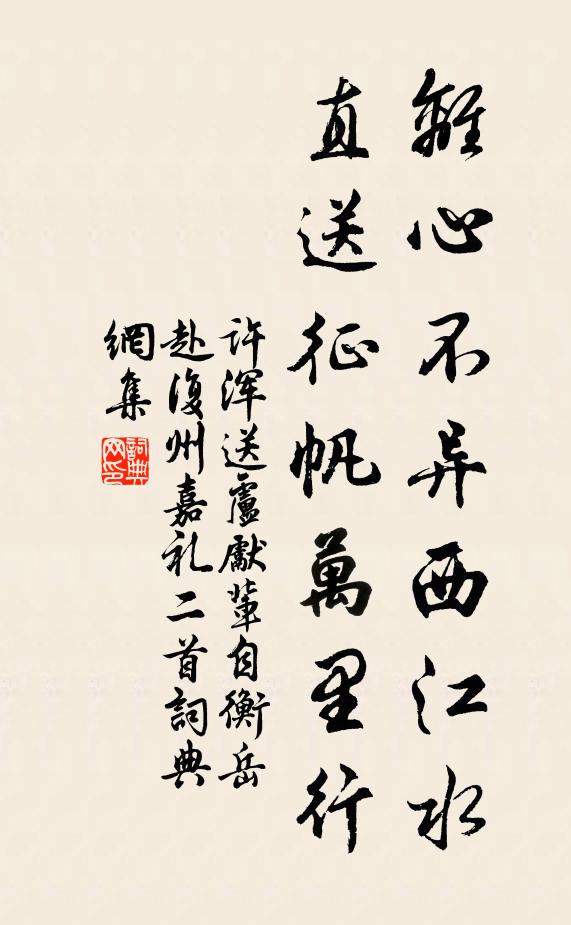 離心不异西江水
直送征帆萬里行
许渾送盧獻輩自衡岳
赴復州嘉礼二首詞典
網集
詞典
网印